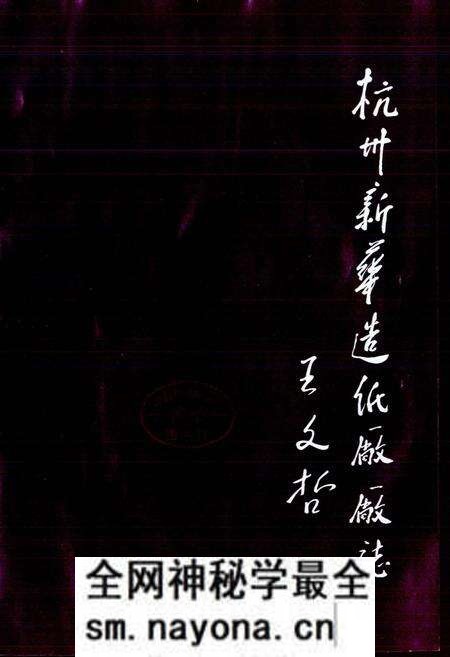 杭州新華造纸廠廠誌
王文哲
全网神秘学最全
sm.nayona.cn